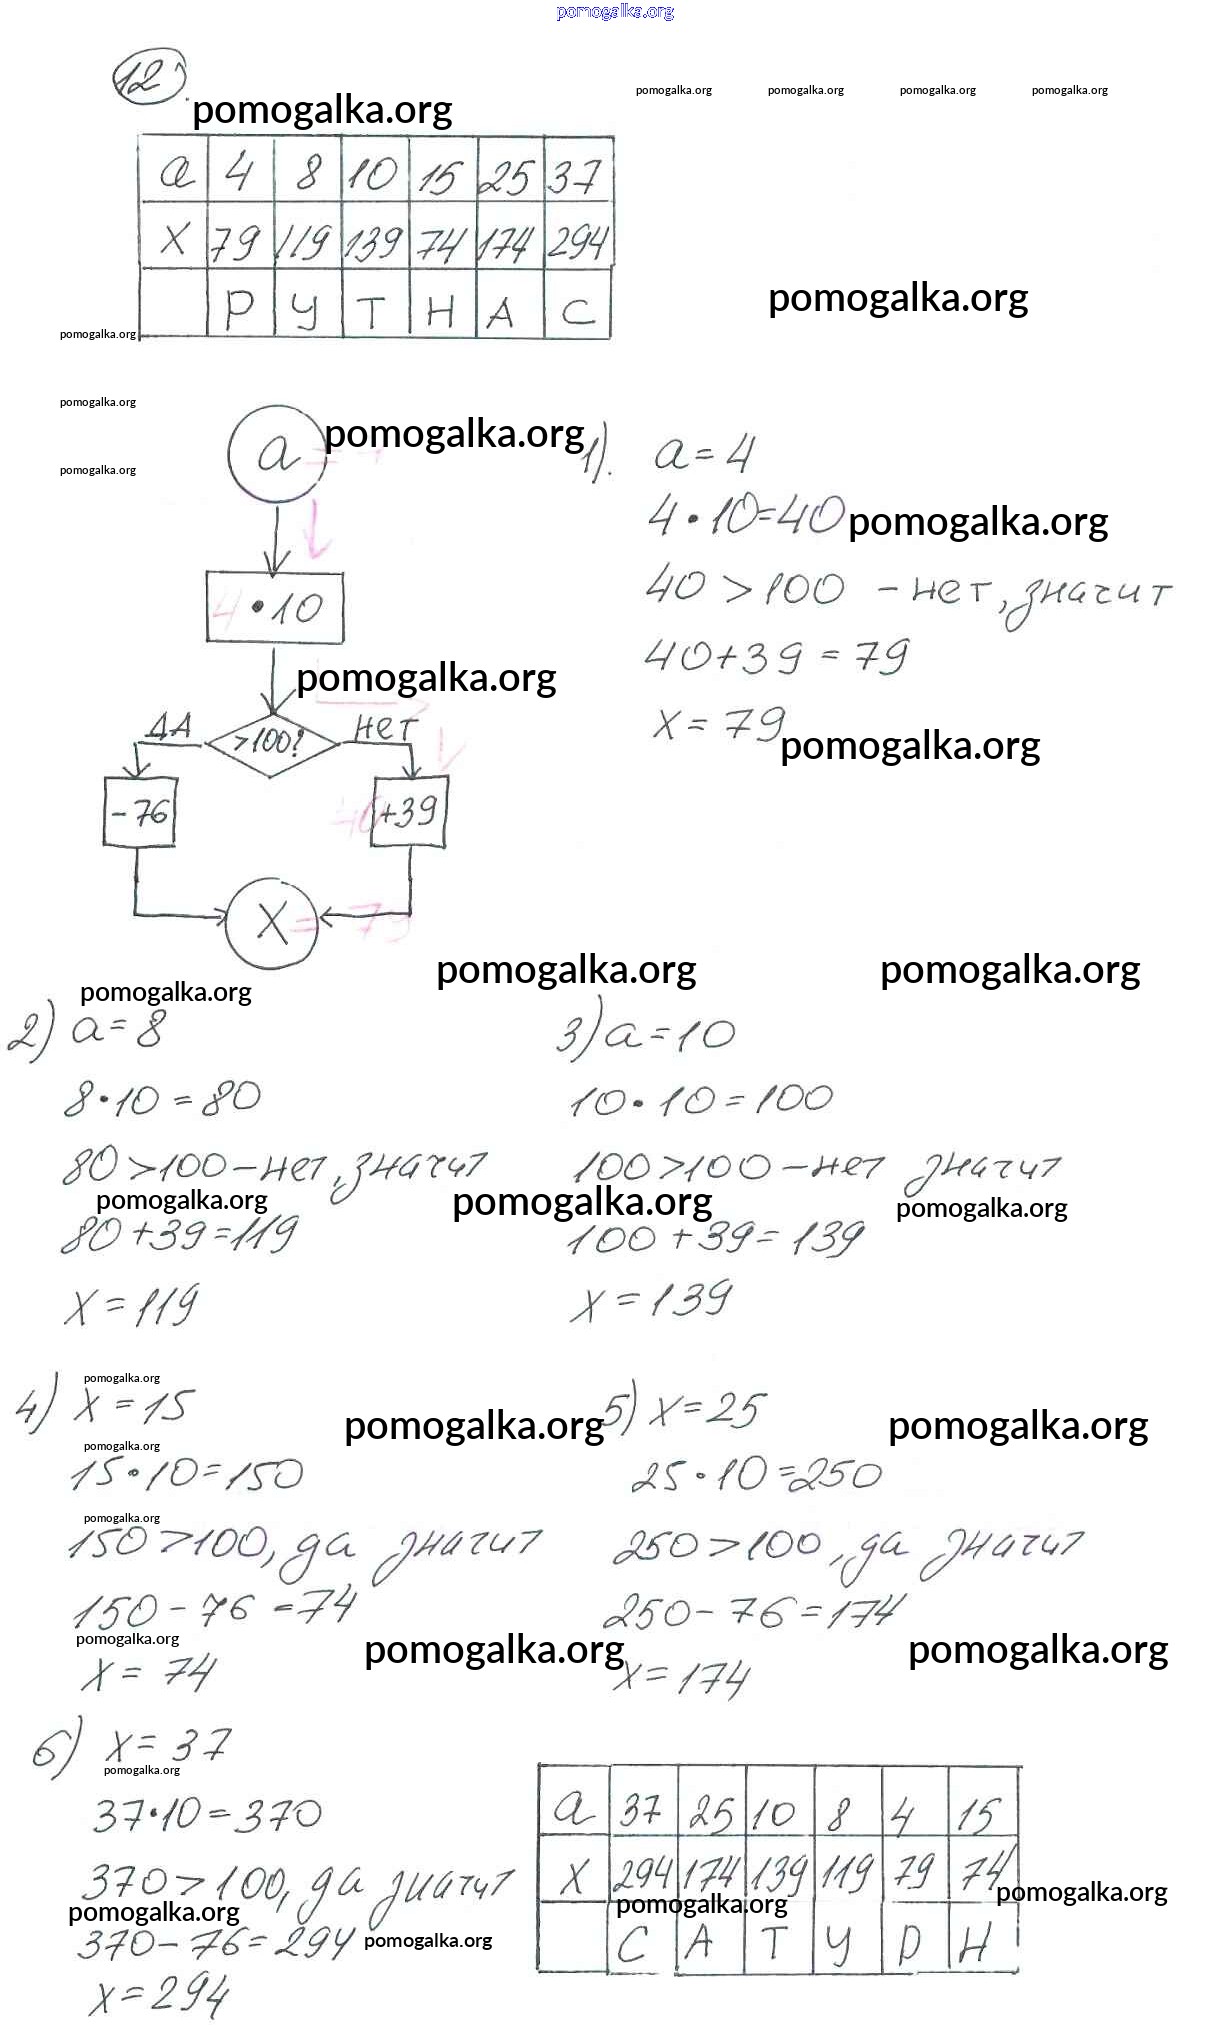 pomogalka.org
12
pomogalka.org pomogalka.org pomogalka.org pomogalka.org
pomogalka.org
а 4 8 10 15 25 37
х 79 119 139 74 174 294
Р У Т Н А С
pomogalka.org
pomogalka.org
pomogalka.org
pomogalka.org
pomogalka.org
а
4 • 10
pomogalka.org
ДА >100? НЕТ
-76 40 +39
х = 79
1). а = 4
4 • 10 = 40 pomogalka.org
40 > 100 - нет, значит
40 + 39 = 79
х = 79
pomogalka.org
pomogalka.org pomogalka.org
pomogalka.org
2) а = 8
8 • 10 = 80
80 > 100 - нет, значит
pomogalka.org
80 + 39 = 119
х = 119
3) а = 10
10 • 10 = 100
100 > 100 - нет значит
pomogalka.org pomogalka.org
100 + 39 = 139
х = 139
pomogalka.org
4) х = 15
pomogalka.org
15 • 10 = 150
pomogalka.org
150 > 100, да значит
150 - 76 = 74
pomogalka.org
х = 74
pomogalka.org
5) х = 25
pomogalka.org
25 • 10 = 250
250 > 100, да значит
250 - 76 = 174
pomogalka.org pomogalka.org
х = 174
6) х = 37
pomogalka.org
37 • 10 = 370
370 > 100, да значит
pomogalka.org
370 - 76 = 294 pomogalka.org
х = 294
а 37 25 10 8 4 15
х 294 174 139 119 79 74
pomogalka.org pomogalka.org
С А Т У Р Н